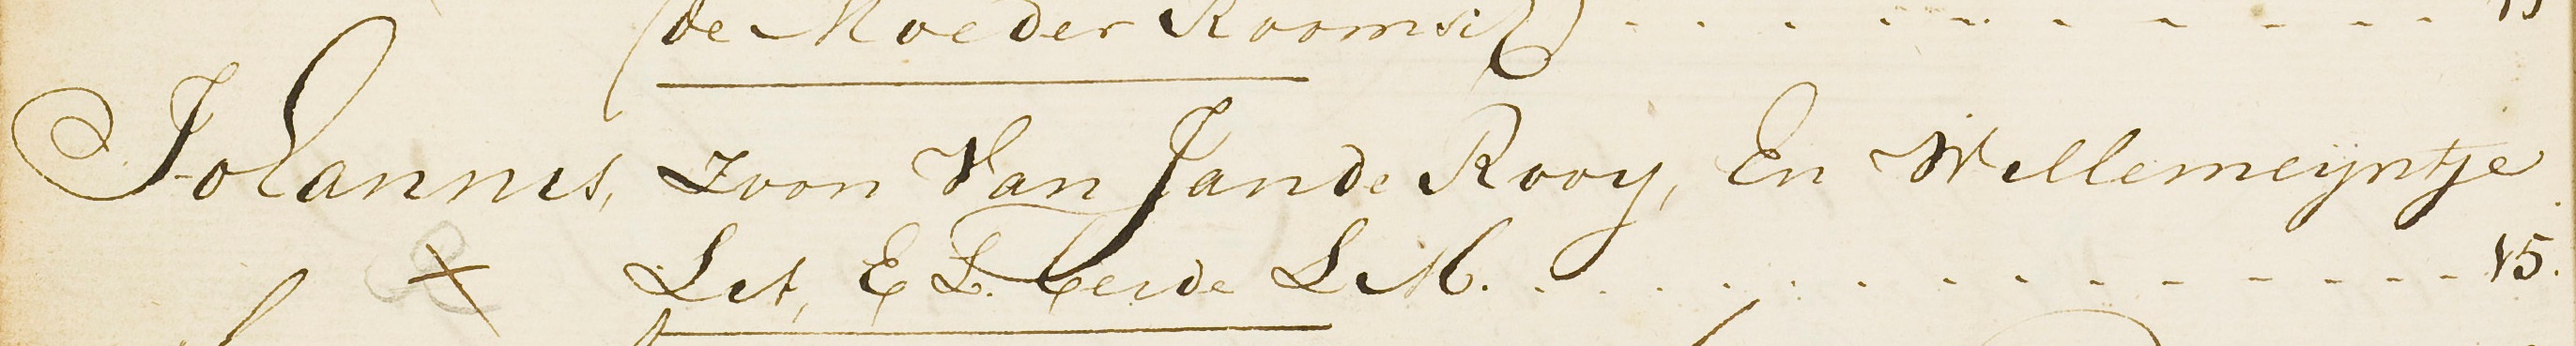 (de Moeder Roomsch) - - - - - - - - - - 15
Johannis, Zoon Van Jan de Rooy, En Willemeijntje
Let, E L. beide LiM. - - - - - - - - - - 15.